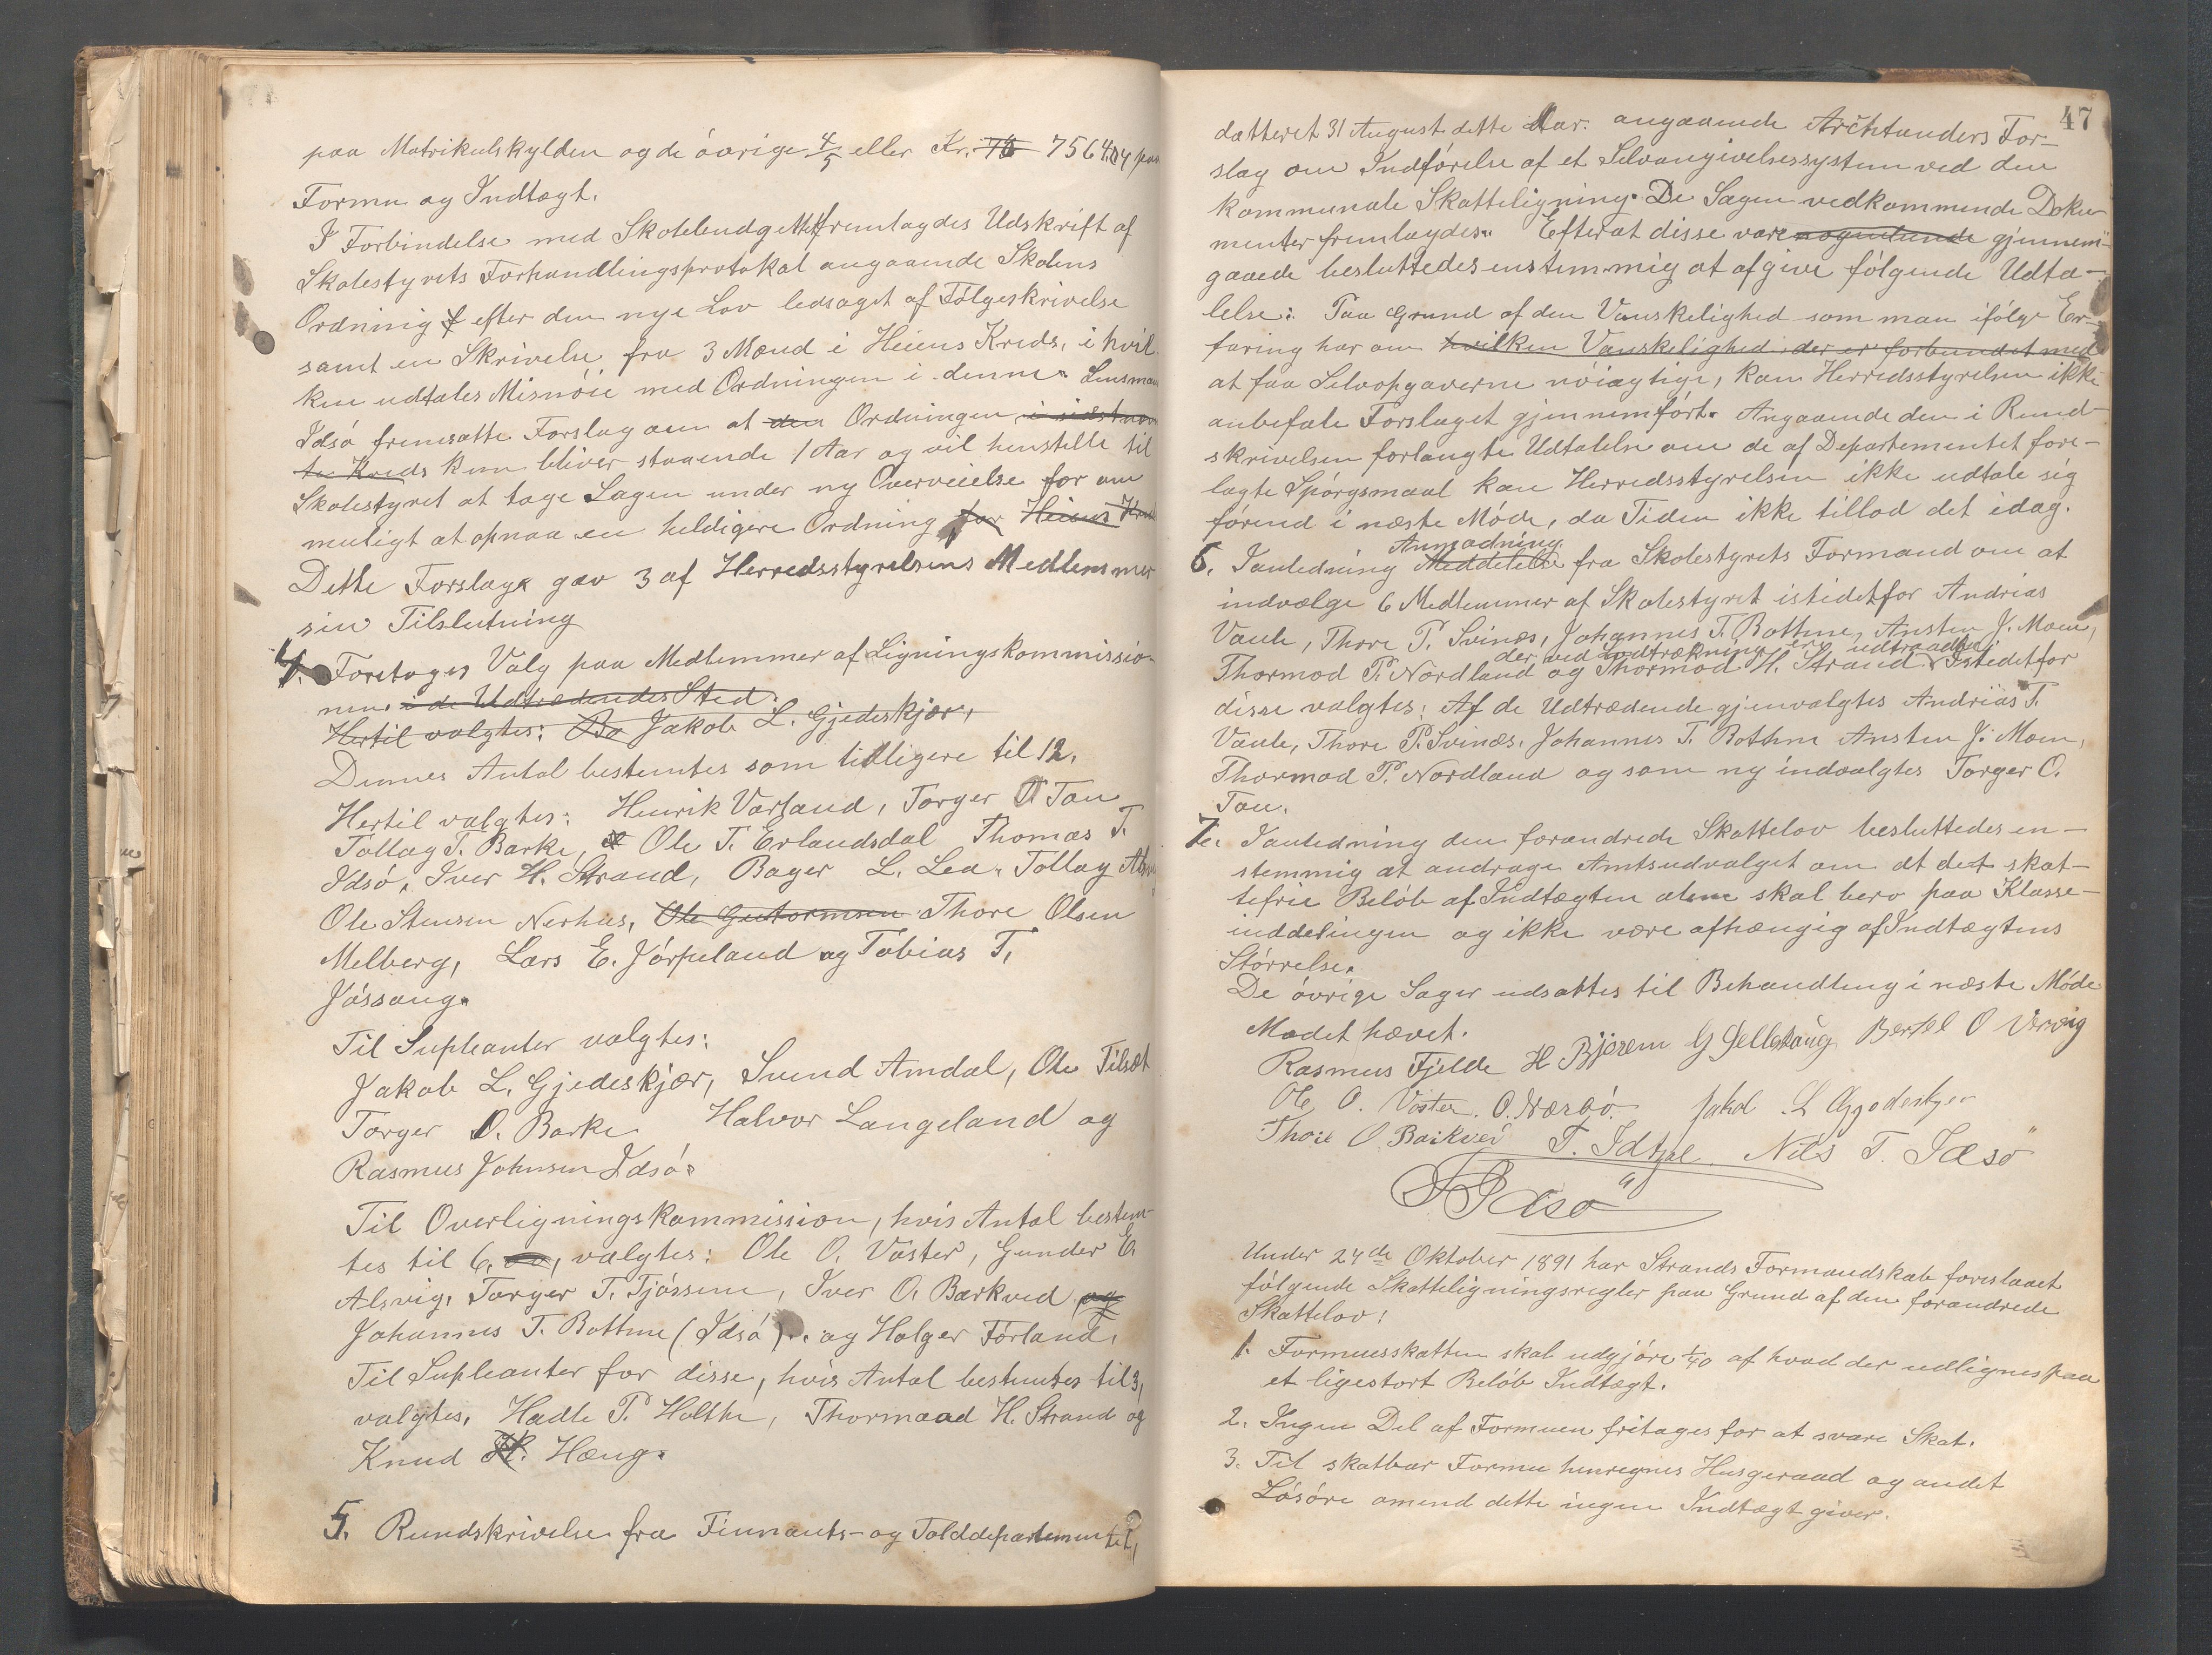 paa Matrikulskylden og de övrige 4/5 eller Kr. 7564,04 paa
Formu og Indtægt.
I Forbindelse med Skolebudgettet fremlagdes Udskrift af
Skolestyrets Forhandlingsprotokol angaaende Skolens
Ordning efter den nye Lov ledsaget af Fölgeskrivelse
samt en Skrivelse fra 3 Mænd i Heiens Kreds, i hvil-
ken udtales Misnöie med Ordningen i denne. Lensmand
Idsö fremsatte Forslag om at den Ordningen i sidstnævn
te Kreds kun bliver staaende 1 Aar og vil henstille til
Skolestyret at tage Sagen under ny Overveielse for om
muligt at opnaa en heldigere Ordning for Heiens Kreds
Dette Forslag gav 3 af Herredsstyrelsens Medlemmer
sin Tilslutning
4. Foretoges Valg paa Medlemmer af Ligningskommissio-
nen. i de Udtrædendes Sted.
Hertil valgtes: Jakob L. Gjedeskjær,
Dennes Antal bestemtes som tidligere til 12.
Hertil valgtes: Henrik Varland, Torger Tau
Tollag T. Barke, Ole T. Erlandsdal Thomas T.
Idsö, Iver H. Strand, Bager L. Lea, Tollag
Ole Stensen Nerhus, Ole Guttormsen Thore Olsen
Melberg, Lars E. Jörpeland og Tobias T.
Jössang.
Til Supleanter valgtes:
Jakob L. Gjedeskjær, Svend Amdal, Ole Tilset
Torger O. Barke Halvor Langeland og
Rasmus Johnsen Idsö.
Til Overligningskommission, hvis Antal bestem-
tes til 6, valgtes: Ole O. Voster, Gunder E.
Alsvig, Torger T. Tjössem, Iver O. Barkved og
Johannes T. Bothne (Idsö). og Holger Förland.
Til Supleanter for disse, hvis Antal bestemtes til 3,
valgtes, Hadle P. Holthe, Thormaad H. Strand og
Knud H. Hæng.
5. Rundskrivelse fra Finnants- og Tolddepartementet,
47
dætteret 31 August dette Aar. angaaende Archtanders For-
slag om Indförelse af et Selvangivelsessystem ved den
kommunale Skatteligning. De Sagen vedkommende Doku-
menter fremlagdes. Efterat disse vare nogenlunde gjennem-
gaaede besluttedes enstemmig at afgive fölgende Udta-
lelse: Paa Grund af den Vanskelighed som man ifölge Er-
faring har om hvilken Vanskelighed der er forbundet med
at faa Selvopgaverne nöiagtige, kan Herredsstyrelsen ikke
anbefale Forslaget gjennemfört. Angaaende den i Rund-
skrivelsen forlangte Udtalelse om de af Departementet fore-
lagte Spörgsmaal kan Herredsstyrelsen ikke udtale sig
förend i næste Möde, da Tiden ikke tillod det idag.
Anmodning
6. Ianledning Meddelelse fra Skolestyrets Formand om at
indvælge 6 Medlemmer af Skolestyret istedetfor Andrias
Vaule, Thore P. Svinæs, Johannes T. Bothne, Austen J. Moen,
der ved Lodtrækning ere udtraadte
Thormod P. Nordland og Thormod H. Strand. Istedetfor
disse valgtes: Af de Udtrædende gjenvalgtes Andrias T.
Vaule, Thore P. Svinæs, Johannes T. Bothne Austen J. Moen,
Thormod P. Nordland og som ny indvalgtes Torger O.
Tau.
7. Ianledning den forandrede Skattelov besluttedes en-
stemmig at andrage Amtsudvalget om at det skat-
tefrie Belöb af Indtægten alene skal bero paa Klasse-
inddelingen og ikke være afhængig af Indtægtens
Störrelse.
De övrige Sager udsattes til Behandling i næste Möde
Mødet hævet.
Rasmus Fjelde H Bjørem Bertel O
Ole O. Voster. O. Nærbö. Jakob L Gjedeskjer
Thore O Barkved T. Idsal Nils T. Idsö
Under 24de Oktober 1891 har Strands Formandskab foreslaaet
fölgende Skatteligningsregler paa Grund af den forandrede
Skattelov:
1. Formuesskatten skal udgjöre 1/40 af hvad der udlignes paa
et ligestort Belöb Indtægt.
2. Ingen Del af Formuen fritages for at svare Skat.
3. Til skatbar Formue henregnes Husgeraad og andet
Lösöre omend dette ingen Indtægt giver.